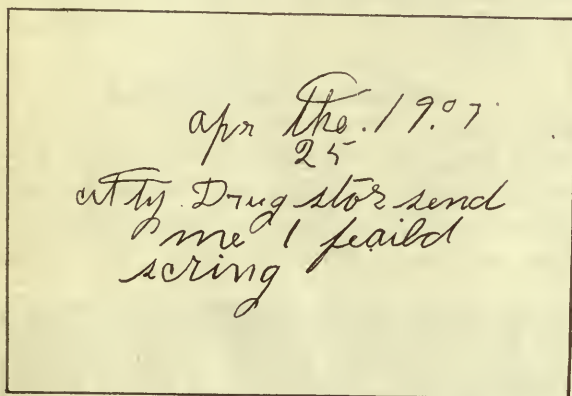 apr the. 1907
25
citty Drug stor send
me 1 feaild
scring